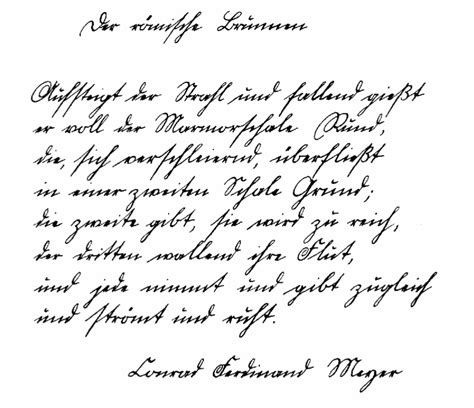 Der römische Brunnen
Aufsteigt der Strahl und fallend gießt
er voll der Marmorschale Rund,
die, sich verschleiernd, überfließt
in einer zweiten Schale Grund;
die zweite gibt, sie wird zu reich,
der dritten wallend ihre Flut,
und jede nimmt und gibt zugleich
und strömt und ruht.
Conrad Ferdinand Meyer